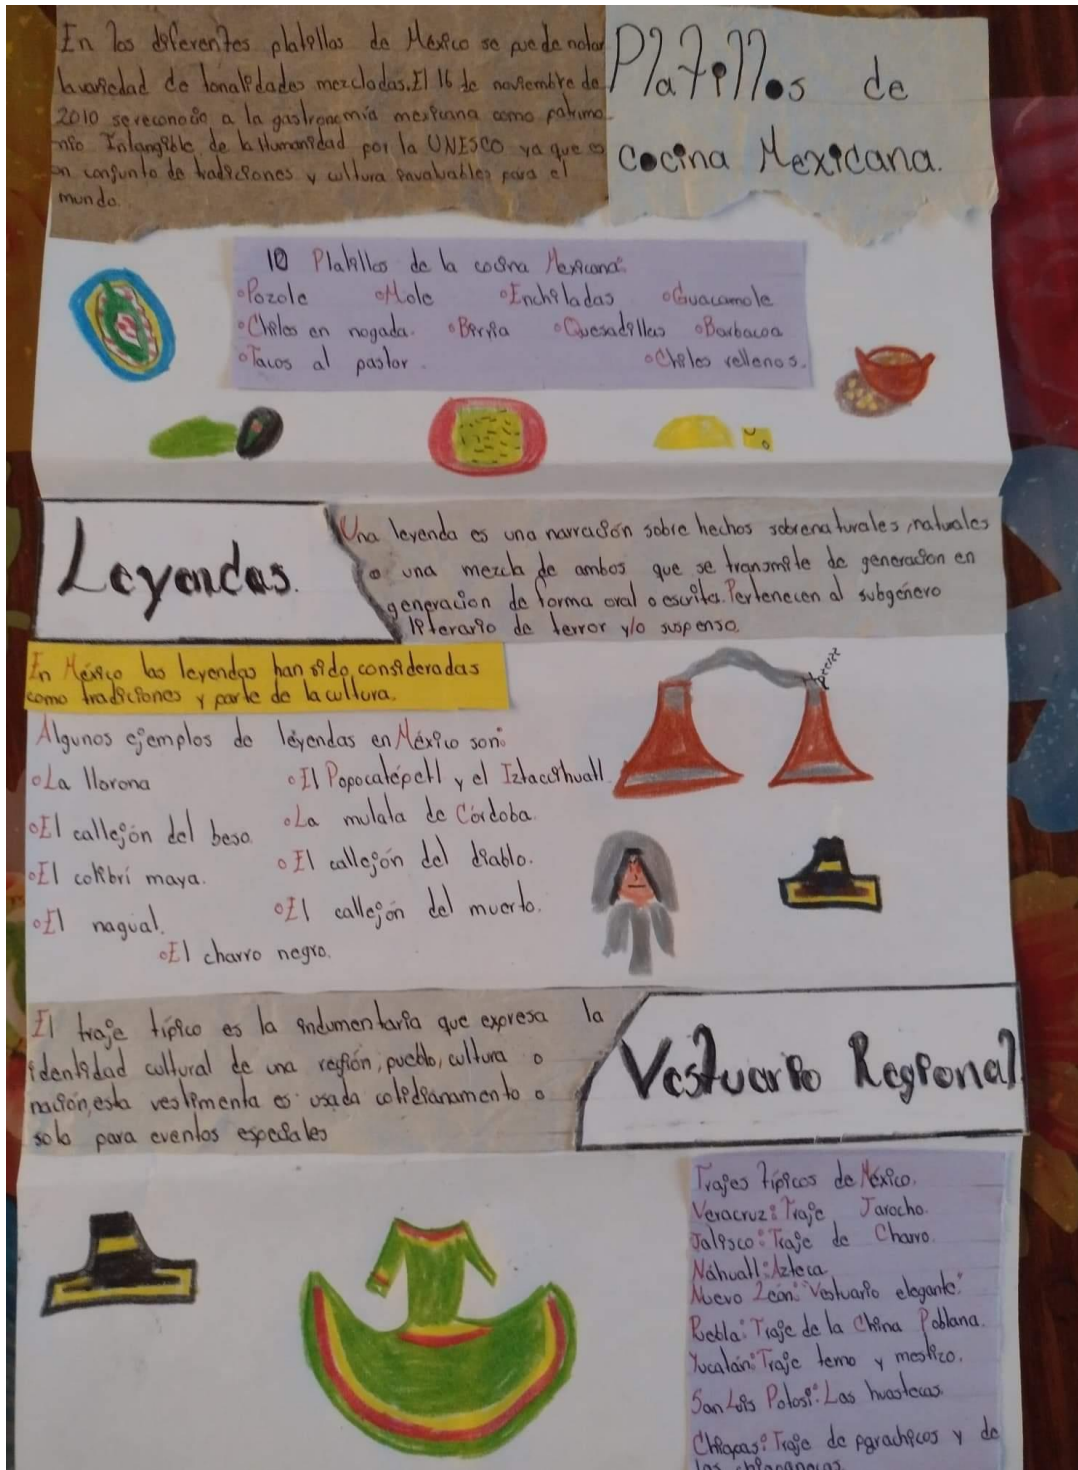 En los diferentes platillos de México se puede notar
la variedad de tonalidades mezcladas. El 16 de noviembre de
2010 se reconoció a la gastronomía mexicana como patrimo-
nio Intangible de la Humanidad por la UNESCO ya que es
un conjunto de tradiciones y cultura invaluables para el
mundo.
Platillos de
cocina Mexicana.
10 Platillos de la cocina Mexicana:
Pozole Mole Enchiladas Guacamole
Chiles en nogada. Birria Quesadillas Barbacoa
Tacos al pastor. Chiles rellenos.
Leyendas.
Una leyenda es una narración sobre hechos sobrenaturales, naturales
o una mezcla de ambos que se transmite de generacion en
generacion de forma oral o escrita. Pertenecen al subgénero
literario de terror y/o suspenso.
En México las leyendas han sido consideradas
como tradiciones y parte de la cultura.
Algunos ejemplos de leyendas en México son:
La llorona El Popocatépetl y el Iztaccíhuatl.
El callejón del beso. La mulata de Córdoba.
El colibrí maya. El callejón del diablo.
El nagual. El callejón del muerto.
El charro negro.
El traje típico es la indumentaria que expresa la
identidad cultural de una región, pueblo, cultura o
nación, esta vestimenta es usada cotidianamento o
solo para eventos especiales
Vestuario Regional
Trajes típicos de México.
Veracruz: Traje Jarocho.
Jalisco: Traje de Charro.
Náhuatl: Azteca
Nuevo León: "Vestuario elegante"
Puebla: Traje de la China Poblana.
Yucatán: Traje terno y mestizo.
San Luis Potosí: Las huastecas.
Chiapas: Traje de parachicos y de
las chiapanecas.